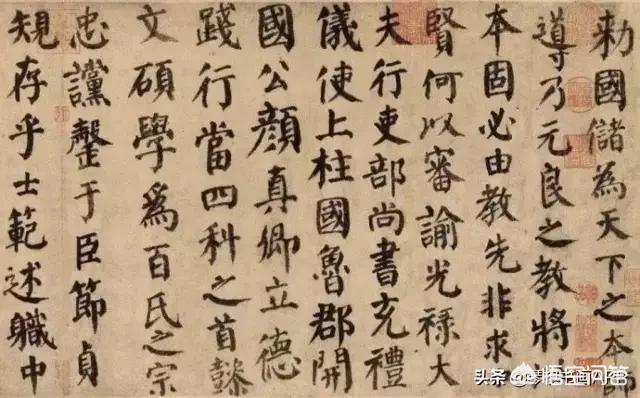 勑國儲為天下之本師
導乃元良之教將
本固必由教先非求
賢何以審諭光祿大
夫行吏部尚書充禮
儀使上柱國魯郡開
國公顏真卿立德
踐行當四科之首懿
文碩學爲百氏之宗
忠讜罄于臣節貞
規存乎士範述職中
悟空问答